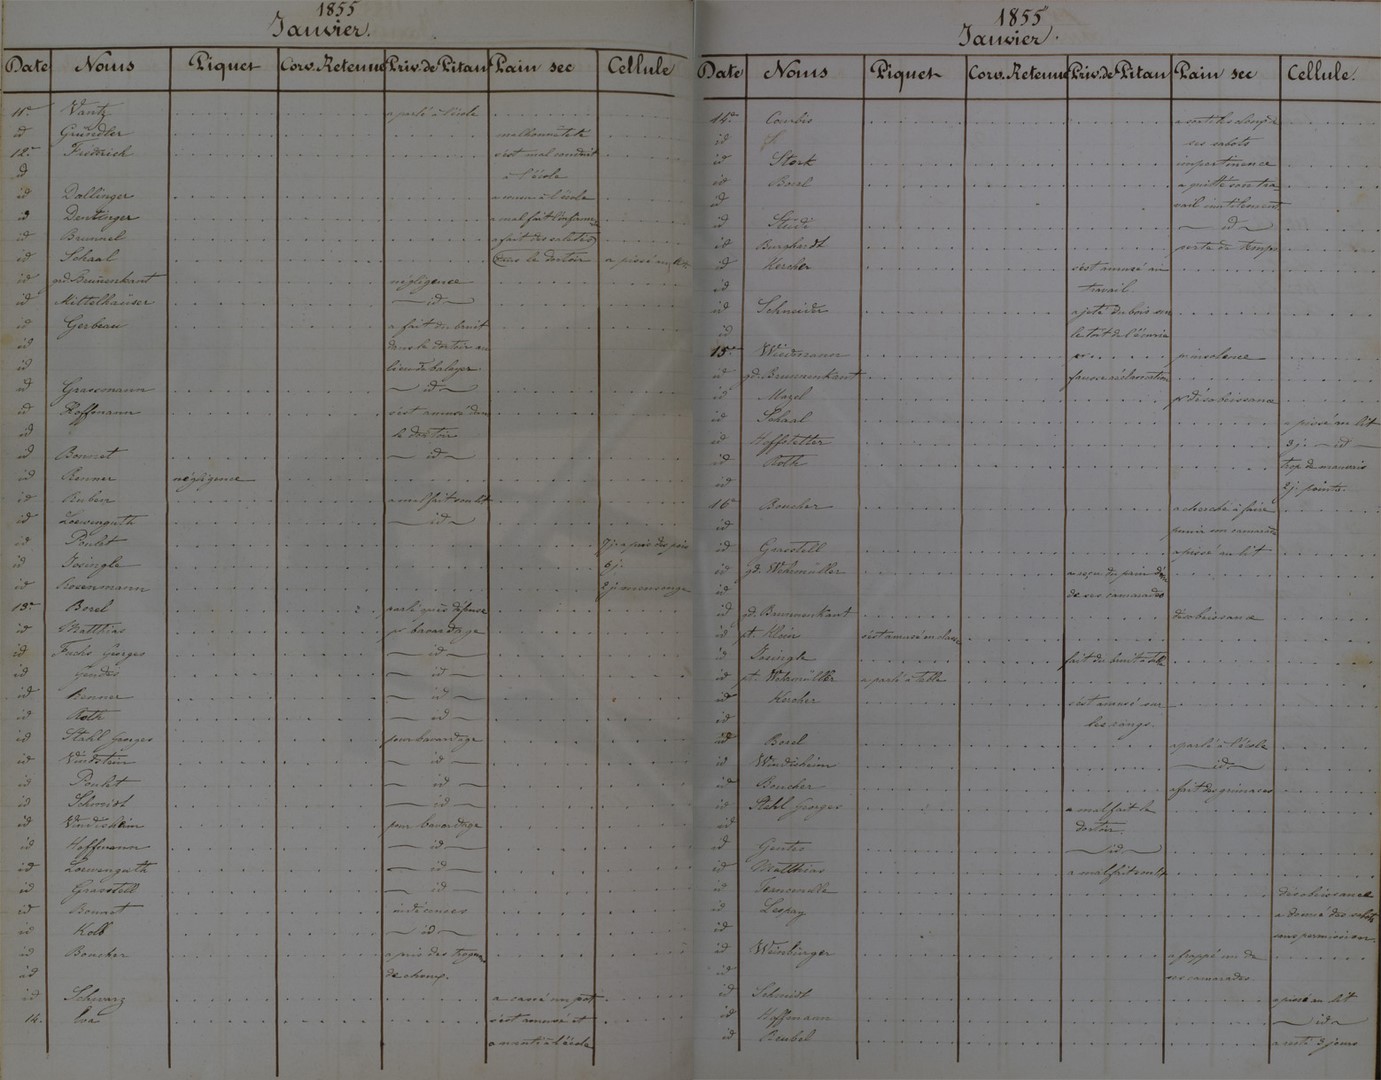 1855
Janvier.
Date Noms Piquet Corv. Retenue Priv. de Pitan Pain sec Cellule
11. Vantz a parlé à l'école
id Gründler malhonnêteté
12. Friderich s'est mal conduit
id à l'école
id Dollinger à l'école
id Dentzinger a mal fait
id Brunnel a fait des saletés
id Schaal dans le dortoir a pissé au lit
id gd. Brunnenkant négligence
id Mittelhäuser id
id Gerbeau a fait du bruit
id dans le dortoir au
id lieu de balayer
id Grassmann id
id Hoffmann s'est amusé dans
id le dortoir
id Bonnet id
id Renner négligence
id Huber a mal fait son lit
id Loewenguth id
id Poulet 2 j. a pris des pois
id Iesingle 6 j.
id Bosenmann 2 j. mensonge
13. Borel parlé quoique défense
id Matthias pr. bavardage
id Fuchs Georges id
id Gendès id
id Renner id
id Roth id
id Stahl Georges pour bavardage
id Windstein id
id Poulet id
id Schmidt id
id Windisheim pour bavardage
id Hoffmann id
id Loewenguth id
id Grasstell id
id Bonnet indécences
id Kolb id
id Boucher a pris des trognons
id de choux.
id Schwarz a cassé un pot
14. s'est amusé et
a menti à l'école
1855
Janvier.
Date Noms Piquet Corv. Retenue Priv. de Pitan Pain sec Cellule.
14.
id ses sabots
id Sterk impertinence
id Borel a quitté son tra
id vail inutilement
id id
id Burghardt perte de temps
id Kercher s'est amusé au
id travail.
id Schneider a jeté du bois sur
id le toit de l'écurie
15. Wiedemann pr. insolence
id gd. Brunnenkant fausse réclamation
id Mazel pr. désobéissance
id Schaal a pissé au lit
id Hoffstetter 3 j. id
id Roth trop de mauvais
id 2 j. points.
16. Boucher a cherché à faire
id punir son camarade
id Grasstell a pissé au lit
id gd. Wehrmüller a reçu du pain d'un
id de ses camarades
id gd. Brunnenkant désobéissance
id pt. Klein s'est amusé en classe
id Iesingle fait du bruit à table
id pt. Wehrmüller a parlé à table
id Kercher s'est amusé sur
id les rangs.
id Borel a parlé à l'école
id Windisheim id
id Boucher a fait des grimaces
id Stahl Georges a mal fait le
id dortoir.
id Gentes id
id Matthias a mal fait son lit
id désobéissance
id Lespay a donné des sabots
id sans permission.
id Weinlinger a frappé un de
id ses camarades.
id Schmidt a pissé au lit
id Hoffmann id
id Beubel 3 jours